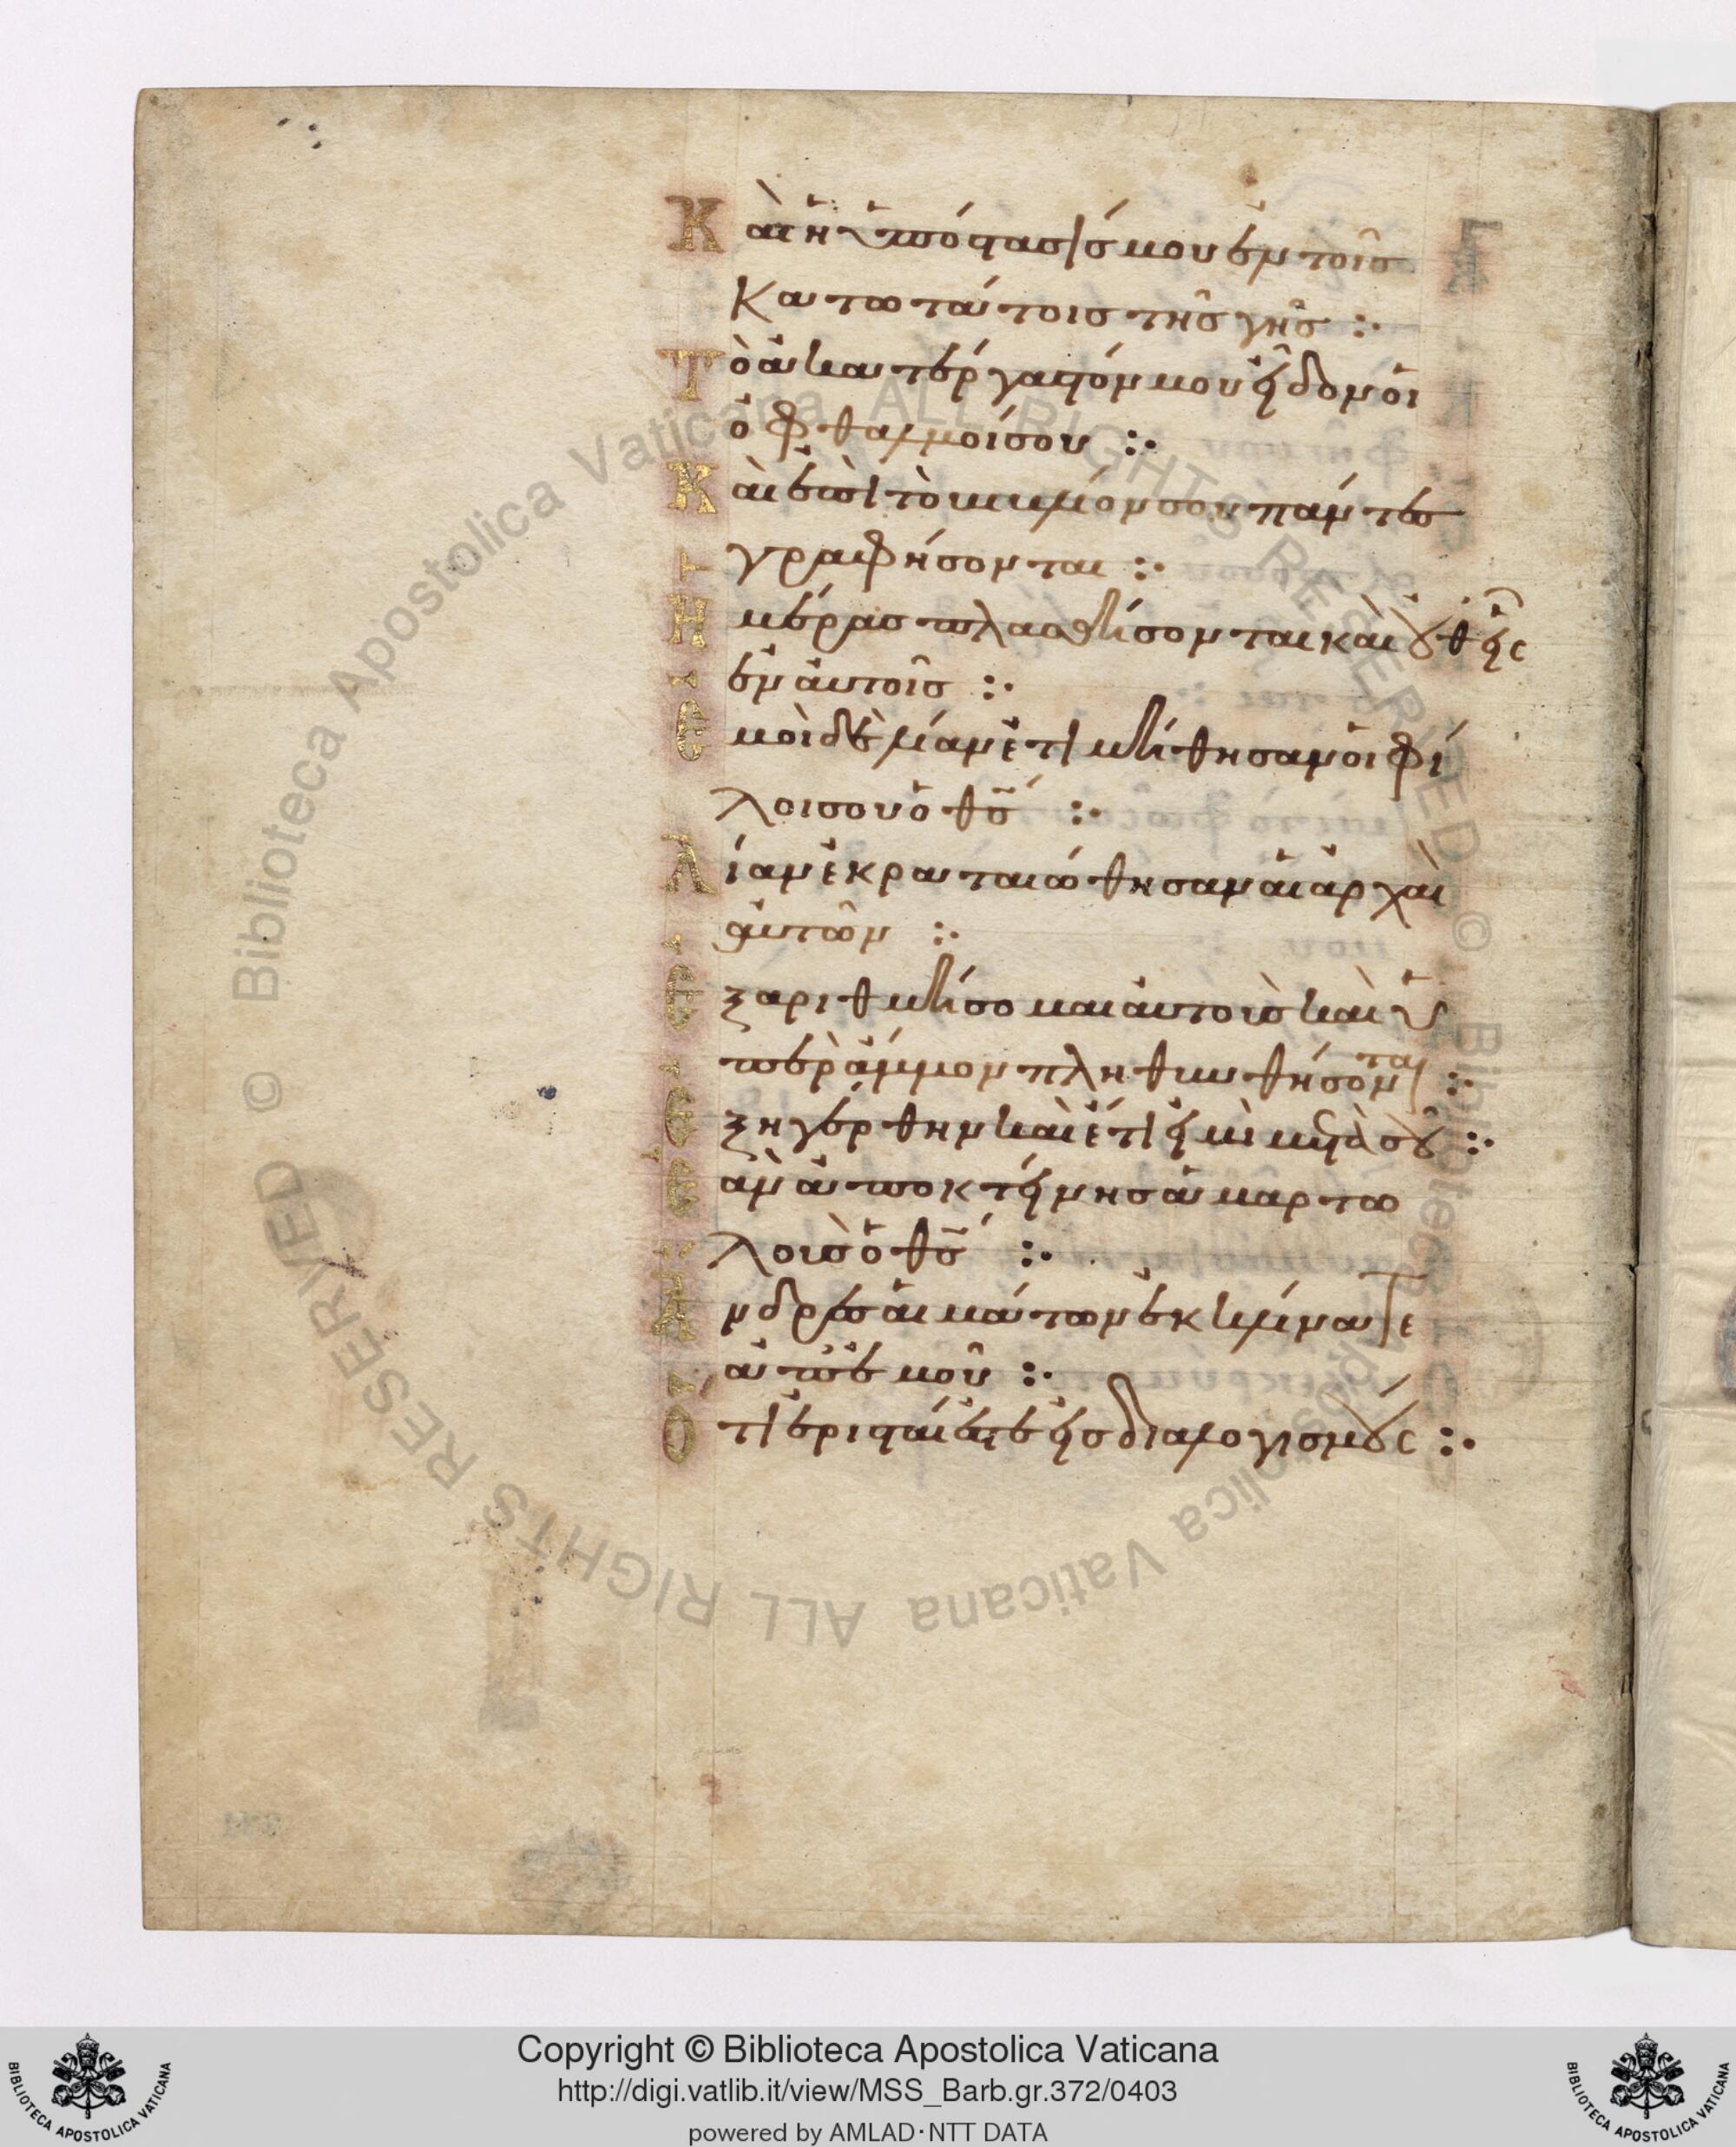 Καὶ ἡ ὑπόστασίσ μου ἐν τοῖσ
κατωτάτοισ τῆσ γῆσ :·
Τὸ ἀκατέργαστόν μου εἶδον οἱ
ὀφθαλμοί σου :·
Καὶ ἐπὶ τὸ βιβλίον σου πάντεσ
γραφήσονται :·
Ημέρασ πλασθήσονται καὶ οὐθεὶς
ἐν ἀυτοῖσ :·
Εμοὶ δὲ λίαν ἐτιμήθησαν οἱ φί
λοι σου ὁ θσ :·
Λίαν ἐκραταιώθησαν ἁι ἀρχαὶ
ἀυτῶν :·
Εξαριθμήσομαι ἀυτοὺσ καὶ ὑ
πὲρ ἄμμον πληθυνθήσονται :·
Εξηγέρθην καὶ ἔτι εἰμὶ μετὰ σοῦ :·
Εὰν ἀποκτείνησ ἁμαρτω
λοὺσ ὁ θσ :·
Ανδρεσ ἁιμάτων ἐκκλίνατε
ἀπ ἐμοῦ :·
Οτι ἐρισταί ἐστε εἰσ διαλογισμούς :·
Copyright © Biblioteca Apostolica Vaticana
http://digi.vatlib.it/view/MSS_Barb.gr.372/0403
powered by AMLAD·NTT DATA
BIBLIOTECA APOSTOLICA VATICANA
BIBLIOTECA APOSTOLICA VATICANA
© Biblioteca Apostolica Vaticana ALL RIGHTS RESERVED © Biblioteca Apostolica Vaticana ALL RIGHTS RESERVED